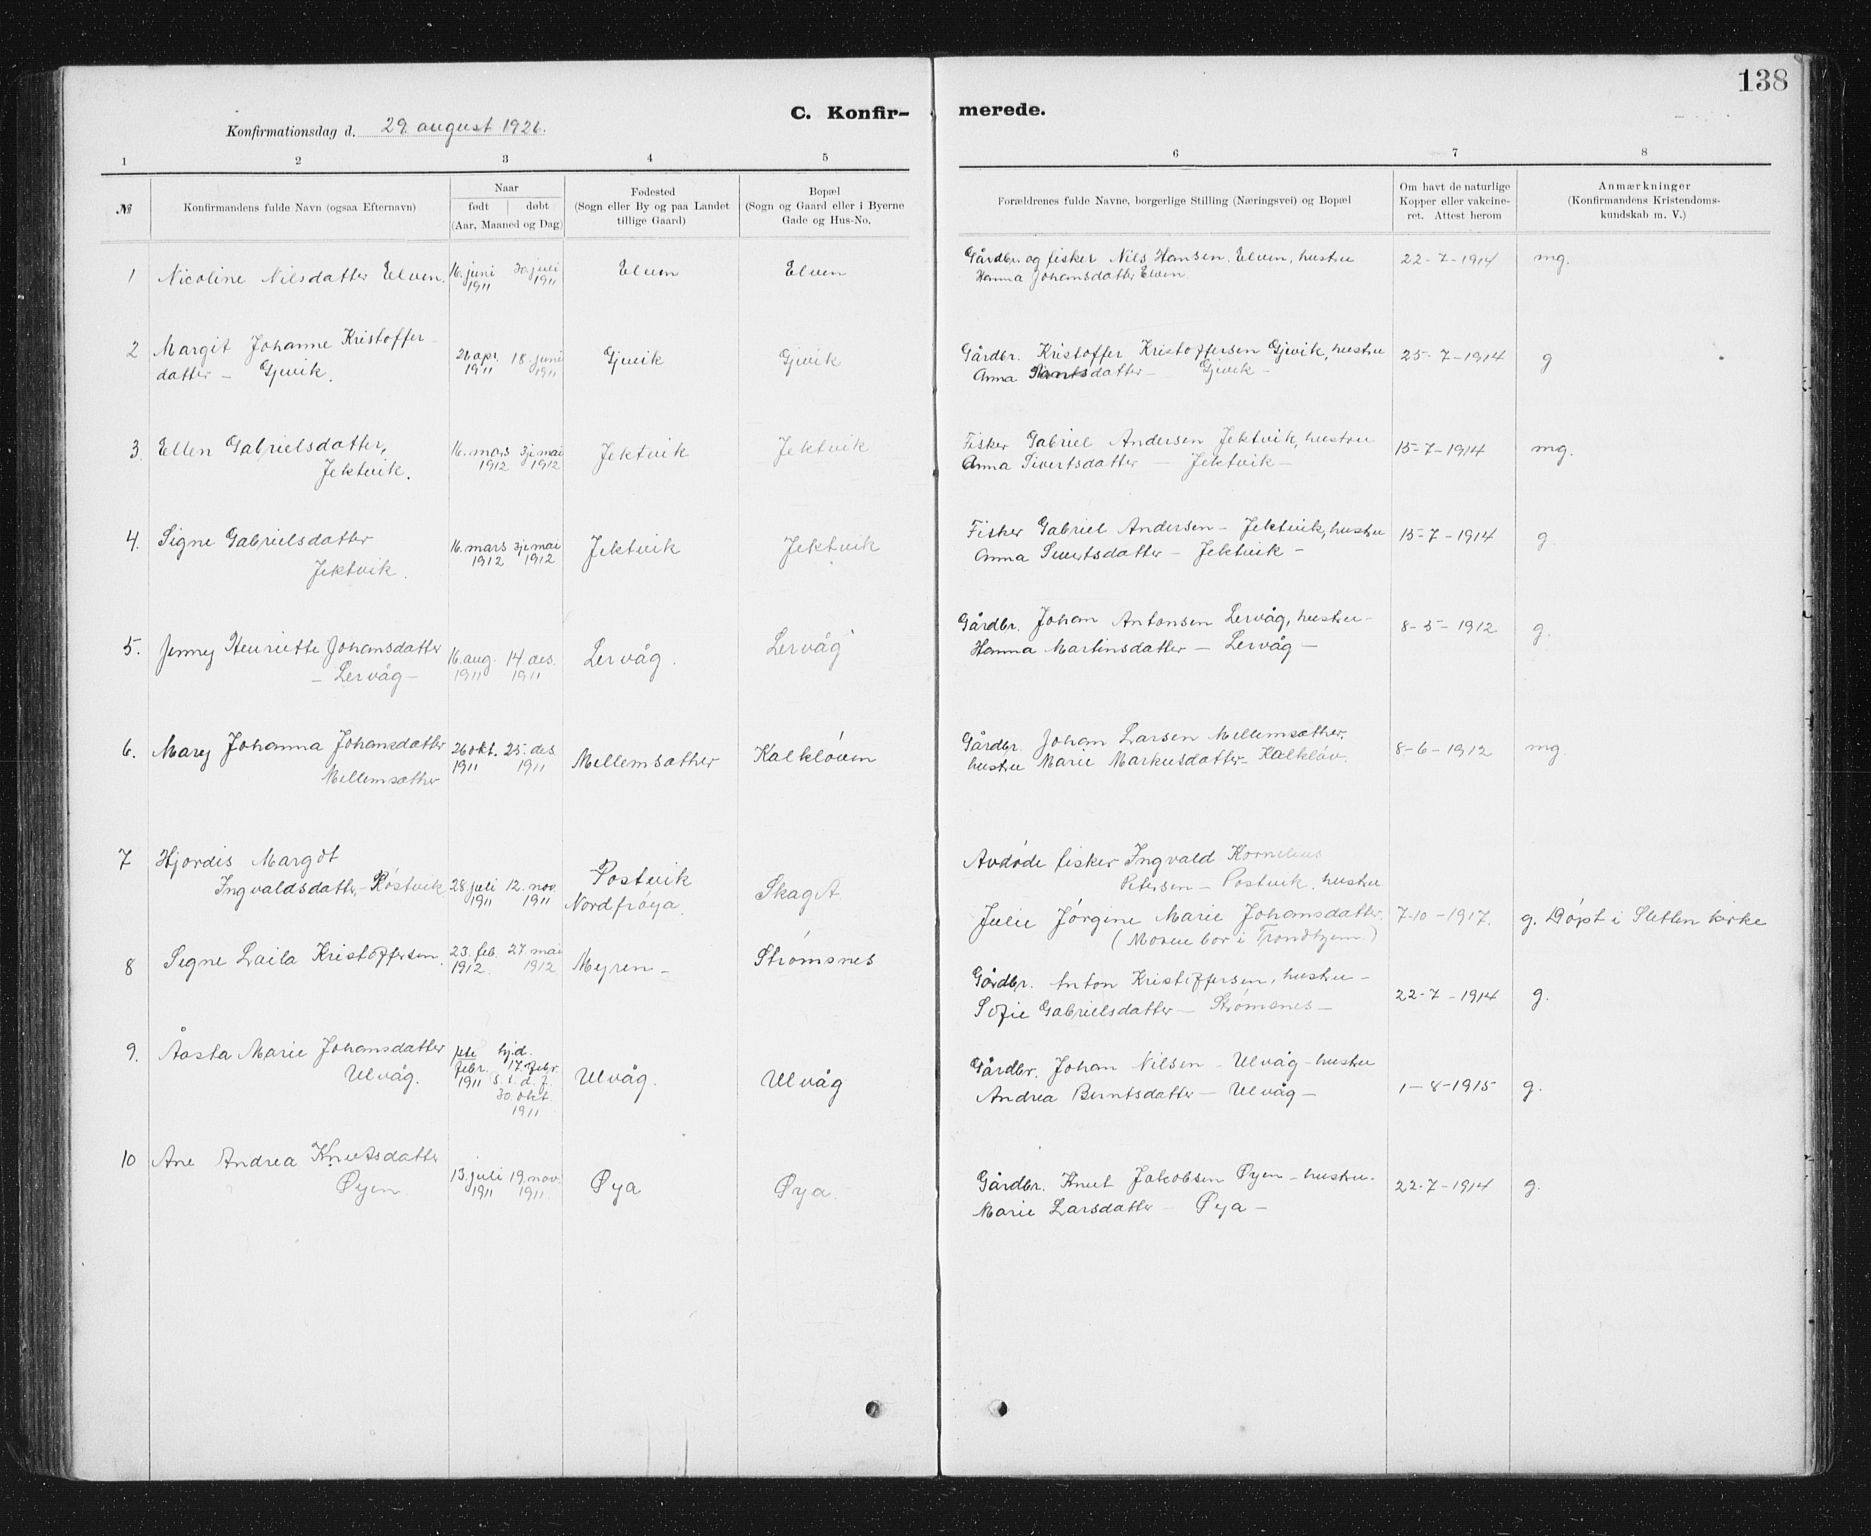 138
C. Konfir- merede.
Konfirmationsdag d. 29. august 1926.
1 2 3 4 5 6 7 8
№
Konfirmandens fulde Navn (ogsaa Efternavn)
Naar
født døbt
(Aar, Maaned og Dag)
Fødested
(Sogn eller By og paa Landet
tillige Gaard)
Bopæl
(Sogn og Gaard eller i Byerne
Gade og Hus-No.
Forældrenes fulde Navne, borgerlige Stilling (Næringsvei) og Bopæl
Om havt de naturlige
Kopper eller vakcine-
ret. Attest herom
Anmærkninger
(Konfirmandens Kristendoms-
kundskab m. V.)
1 Nicoline Nilsdatter Elven. 16. juni 30. juli Elven Elven
1911 1911
Gårdbr. og fisker Nils Hansen, Elven, hustru 22-7-1914 mg.
Hanna Johansdatter Elven.
2 Margit Johanne Kristoffer-
datter – Gjevik. 26 apr. 18. juni Gjevik Gjevik
1911 1911
Gårdbr. Kristoffer Kristoffersen Gjevik, hustru 25-7-1914 g
Anna datter – Gjevik –
3. Ellen Gabrielsdatter,
Jektvik. 16. mars 3je mai Jektvik Jektvik
1912 1912
Fisker Gabriel Andersen Jektvik, hustru 15-7-1914 mg.
Anna Sivertsdatter – Jektvik –
4. Signe Gabrielsdatter
Jektvik. 16. mars 3je mai Jektvik Jektvik
1912 1912
Fisker Gabriel Andersen – Jektvik, hustru 15-7-1914 g.
Anna Sivertsdatter – Jektvik –
5. Jenny Henriette Johansdatter
– Lervåg – 16. aug. 14 des. Lervåg. Lervåg
1911 1911
Gårdbr. Johan Antonsen Lervåg, hustru – 8-5-1912 g.
Hanna Martinsdatter – Lervåg –
6. Mary Johanna Johansdatter
Mellemsæther 26 okt. 25. des. Mellemsæther Kalkløven
1911 1911
Gårdbr. Johan Larsen Mellemsæther, 8-6-1912 mg.
hustru Marie Markusdatter – Kalkløv.
7 Hjordis Margot
Ingvaldsdatter – Postvik 28. juli 12. nov. Postvik Skaget
1911 1911 Nordfrøya.
Avdøde fisker Ingvald Kornelius
Petersen – Postvik, hustru
Julie Jørgine Marie Johansdatter. 7-10-1917. g. Døpt i Sletten kirke
(Moren bor i Trondhjem.)
8 Signe Laila Kristoffersen. 23. feb. 27. mai Myren – Strømsnes
1912. 1912
Gårdbr. Anton Kristoffersen, hustru –
Sofie Gabrielsdatter – Strømsnes – 22-7-1914 g.
9. Åasta Marie Johansdatter
Ulvåg. febr. 1911 hj.d. 17. febr. s. i. d. f. 30. okt. 1911 Ulvåg. Ulvåg
Gårdbr. Johan Nilsen – Ulvåg – hustru
Andrea Berntsdatter – Ulvåg – 1-8-1915 g.
10 Ane Andrea Knutsdatter
Øyen 13. juli 19. nov. Øya Øya.
1911 1911.
Gårdbr. Knut Jakobsen Øyen – hustru. 22-7-1914 g.
Marie Larsdatter – Øya –